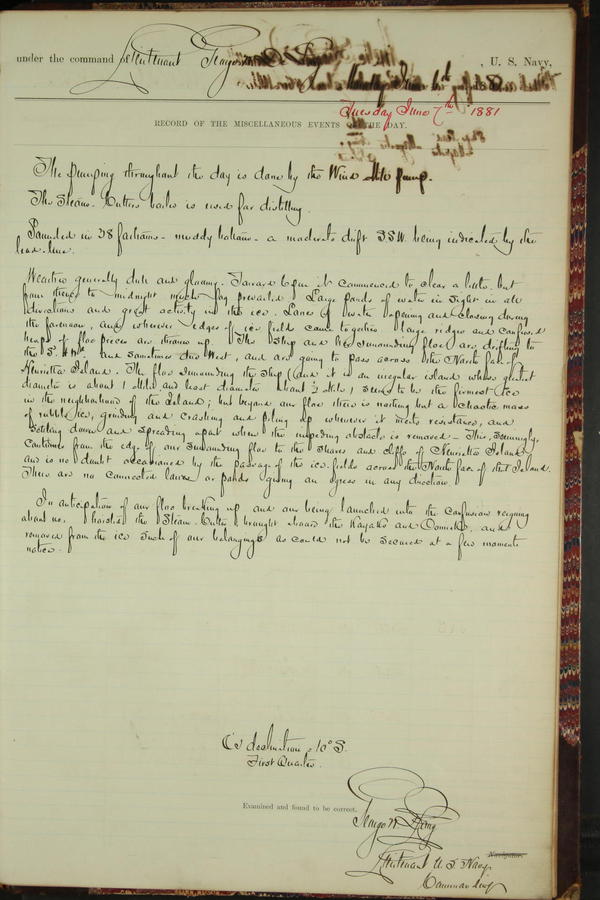 under the command of Lieutenant George W. De Long, U. S. Navy,
Tuesday June 7th 1881
RECORD OF THE MISCELLANEOUS EVENTS OF THE DAY.
The Pumping throughout the day is done by the Wind Mill pump.
The Steam-Cutters boiler is used for distilling.
Sounded in 38 fathoms - muddy bottom - a moderate drift S.S.W. being indicated by the
lead line.
Weather generally dull and gloomy. Toward 6 pm it commenced to clear a little, but
from thence to midnight much fog prevailed. Large ponds of water in sight in all
directions and great activity in the ice. Lanes of water opening and closing during
the forenoon, and wherever edges of ice field came together large ridges and confused
heaps of floe pieces are thrown up. The Ship and her surrounding floe, are drifting to
the and sometimes due West, and are going to pass across the North face of
Henrietta Island. The floe surrounding the ship (and it is an irregular island whose greatest
diameter is about 1 Mile and least diameter about ½ Mile) seems to be the firmest ice
in the neighborhood of the Island; but beyond our floe there is nothing but a chaotic mass
of rubble ice, grinding and crashing and piling up wherever it meets resistance, and
settling down and spreading apart when the impeding obstacle is removed - This, seemingly,
continues from the edge of our surrounding floe to the Shores and Cliffs of Henrietta Island
and is no doubt occasioned by the passage of the ice fields across the North face of that Island.
There are no connected lanes or ponds giving an egress in any direction.
In anticipation of our floe breaking up and our being launched into the confusion reigning
about us, hoisted the Steam-Cutter, brought aboard the Kayaks and Oomiak, and
removed from the ice such of our belongings as could not be secured at a few moments
notice.
declination, 10° S.
First Quarter.
Examined and found to be correct.
George W. De Long
Navigator.
Lieutenant U. S. Navy
Commanding